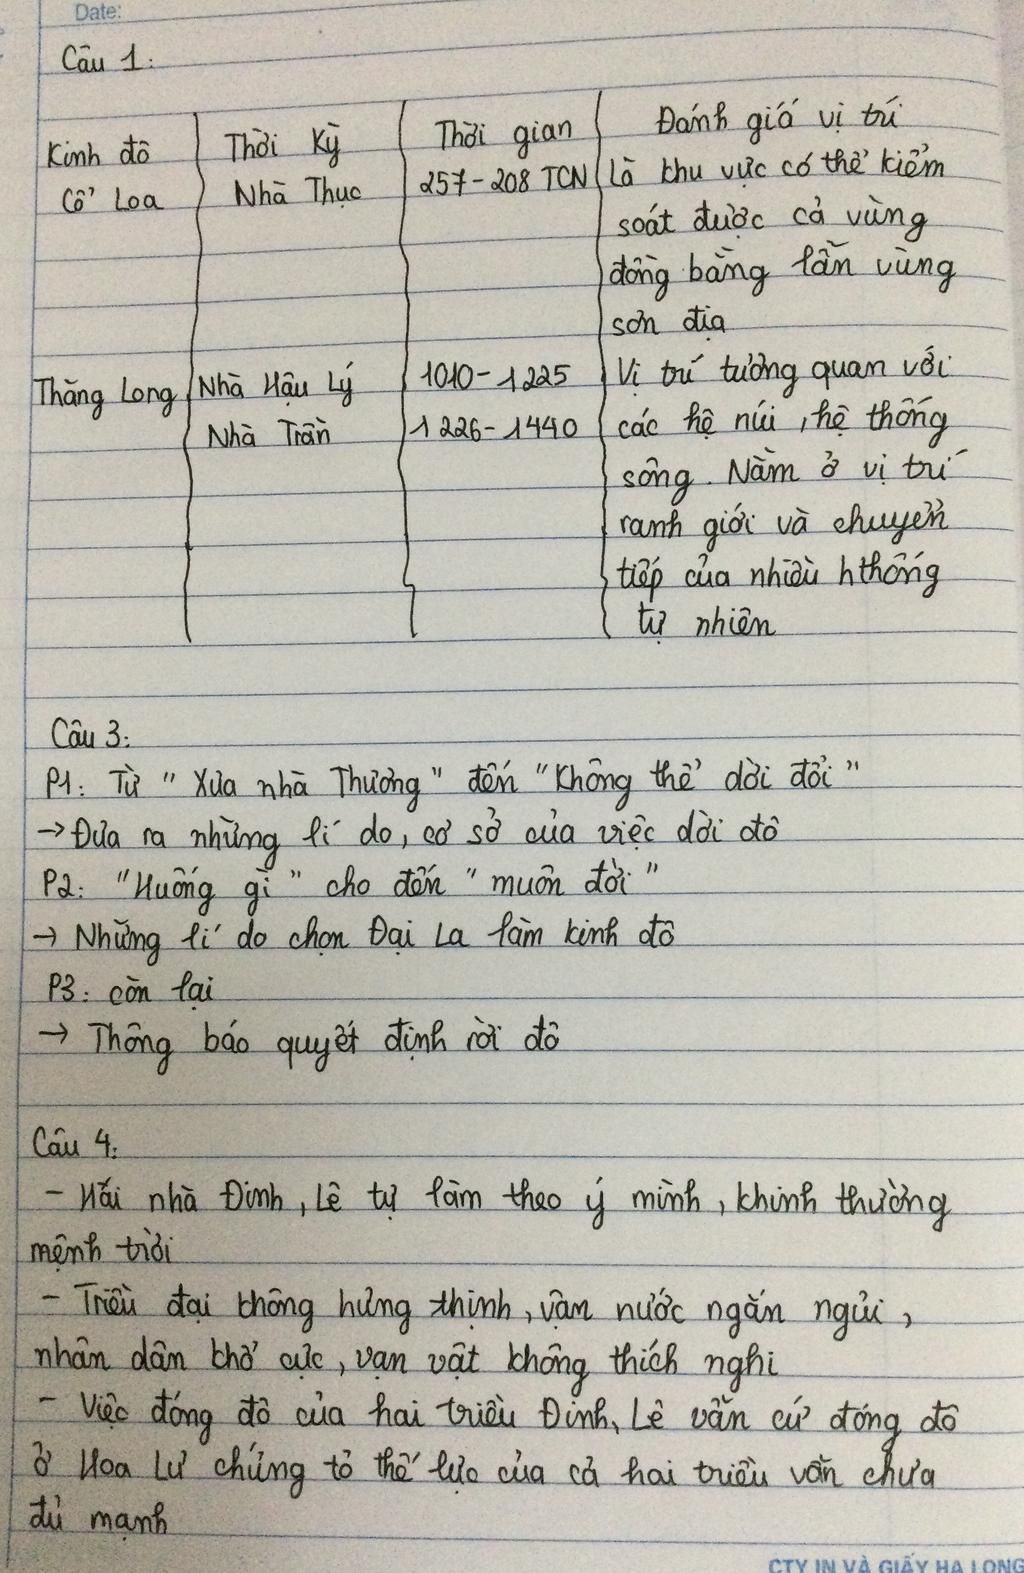 Date:
Câu 1:
Kinh đô | Thời Kỳ | Thời gian | Đánh giá vị trí
Cổ Loa | Nhà Thục | 257-208 TCN | Là khu vực có thể kiểm
soát được cả vùng
đồng bằng lẫn vùng
sơn địa
Thăng Long | Nhà Hậu Lý | 1010-1225 | Vị trí tương quan với
Nhà Trần | 1226-1440 | các hệ núi, hệ thống
sông. Nằm ở vị trí
ranh giới và chuyển
tiếp của nhiều hthống
tự nhiên
Câu 3:
P1: Từ "Xưa nhà Thương" đến "Không thể dời đổi"
→ Đưa ra những lí do, cơ sở của việc dời đô
P2: "Huống gì" cho đến "muôn đời"
→ Những lí do chọn Đại La làm kinh đô
P3: còn lại
→ Thông báo quyết định rời đô
Câu 4:
- Hai nhà Đinh, Lê tự làm theo ý mình, khinh thường
mệnh trời
- Triều đại không hưng thịnh, vận nước ngắn ngủi,
nhân dân khổ cực, vạn vật không thích nghi
- Việc đóng đô của hai triều Đinh, Lê vẫn cứ đóng đô
ở Hoa Lư chứng tỏ thế lực của cả hai triều vẫn chưa
đủ mạnh
CTY IN VÀ GIẤY HẠ LONG